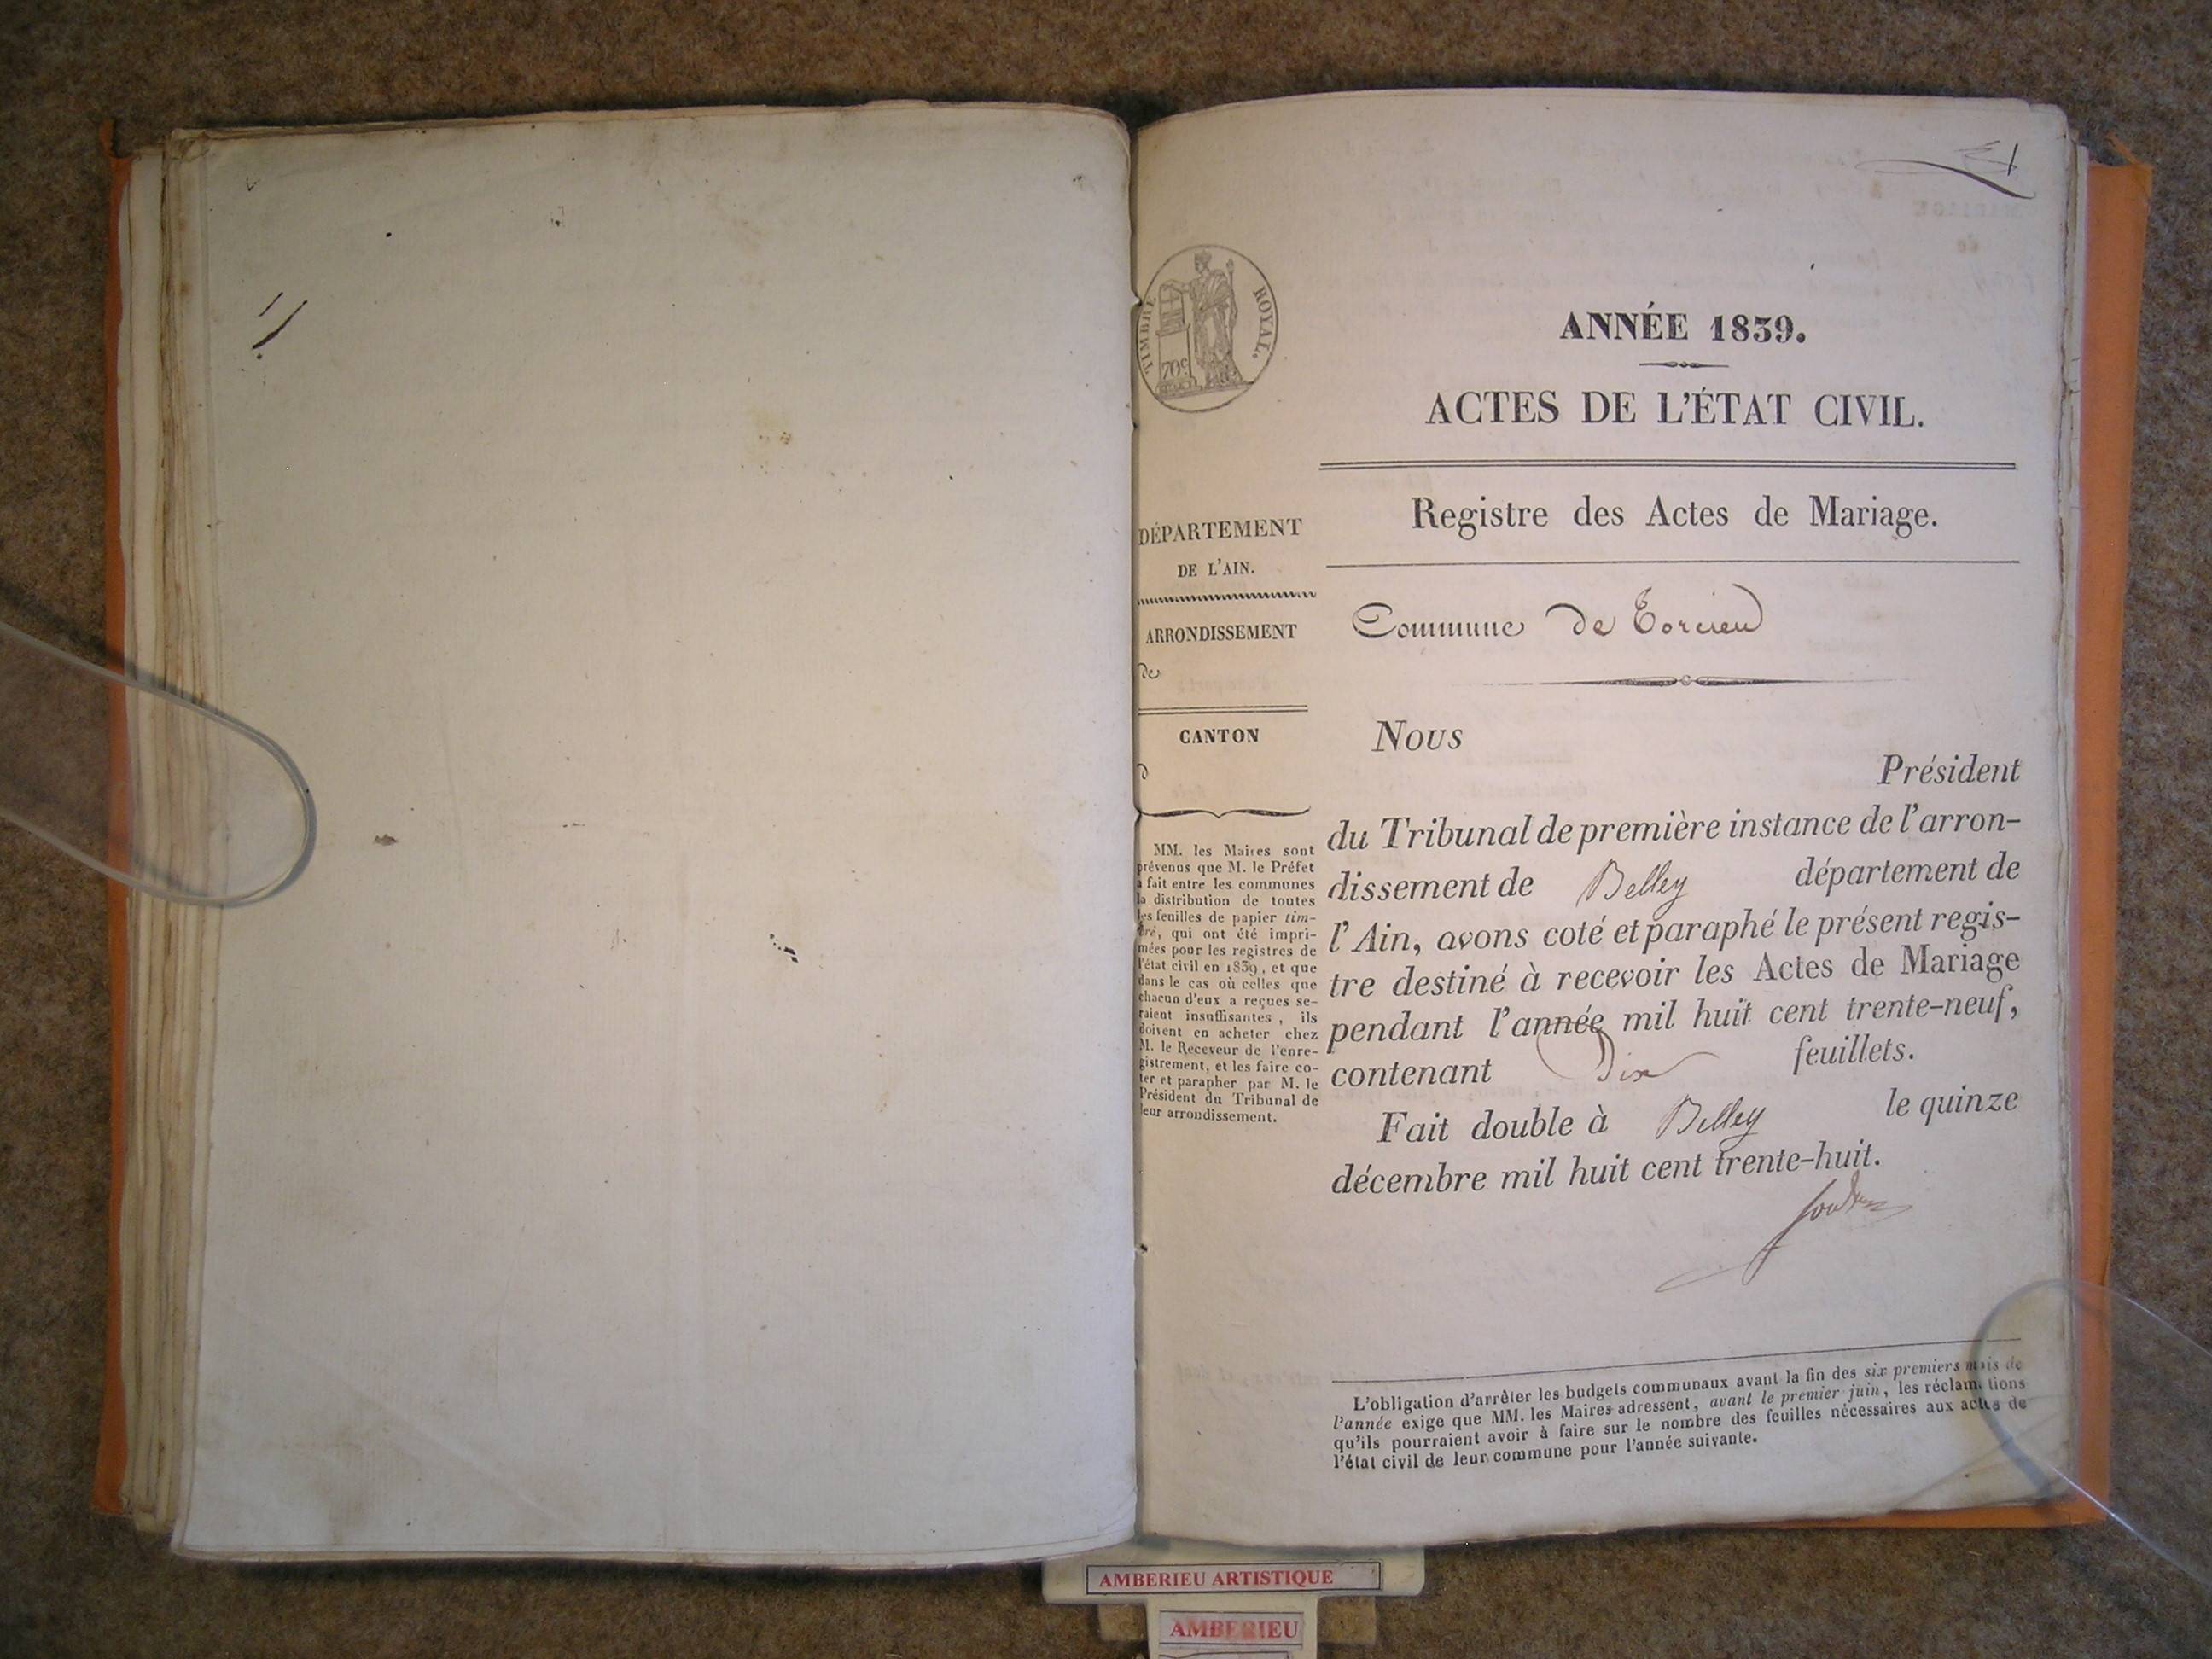 1
TIMBRE ROYAL.
70c
ANNÉE 1839.
ACTES DE L'ÉTAT CIVIL.
Registre des Actes de Mariage.
Commune de Torcieu
DÉPARTEMENT
DE L'AIN.
ARRONDISSEMENT
de
CANTON
d
MM. les Maires sont
prévenus que M. le Préfet
a fait entre les communes
la distribution de toutes
les feuilles de papier tim-
bré, qui ont été impri-
mées pour les registres de
l'état civil en 1839, et que
dans le cas où celles que
chacun d'eux a reçues se-
raient insuffisantes, ils
doivent en acheter chez
M. le Receveur de l'enre-
gistrement, et les faire co-
ter et parapher par M. le
Président du Tribunal de
leur arrondissement.
Nous
Président
du Tribunal de première instance de l'arron-
dissement de Belley département de
l'Ain, avons coté et paraphé le présent regis-
tre destiné à recevoir les Actes de Mariage
pendant l'année mil huit cent trente-neuf,
contenant Dix feuillets.
Fait double à Belley le quinze
décembre mil huit cent trente-huit.
L'obligation d'arrêter les budgets communaux avant la fin des six premiers mois de
l'année exige que MM. les Maires adressent, avant le premier juin, les réclamations
qu'ils pourraient avoir à faire sur le nombre des feuilles nécessaires aux actes de
l'état civil de leur commune pour l'année suivante.
AMBERIEU ARTISTIQUE
AMBERIEU